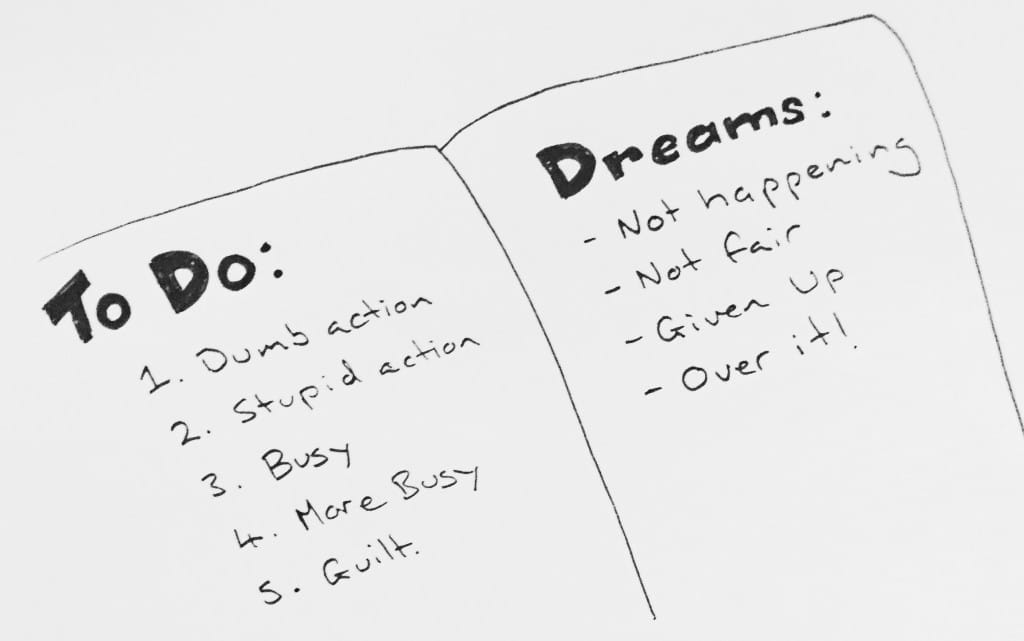 To Do:
1. Dumb action
2. Stupid action
3. Busy
4. More Busy
5. Guilt.
Dreams:
- Not happening
- Not fair
- Given Up
- Over it!